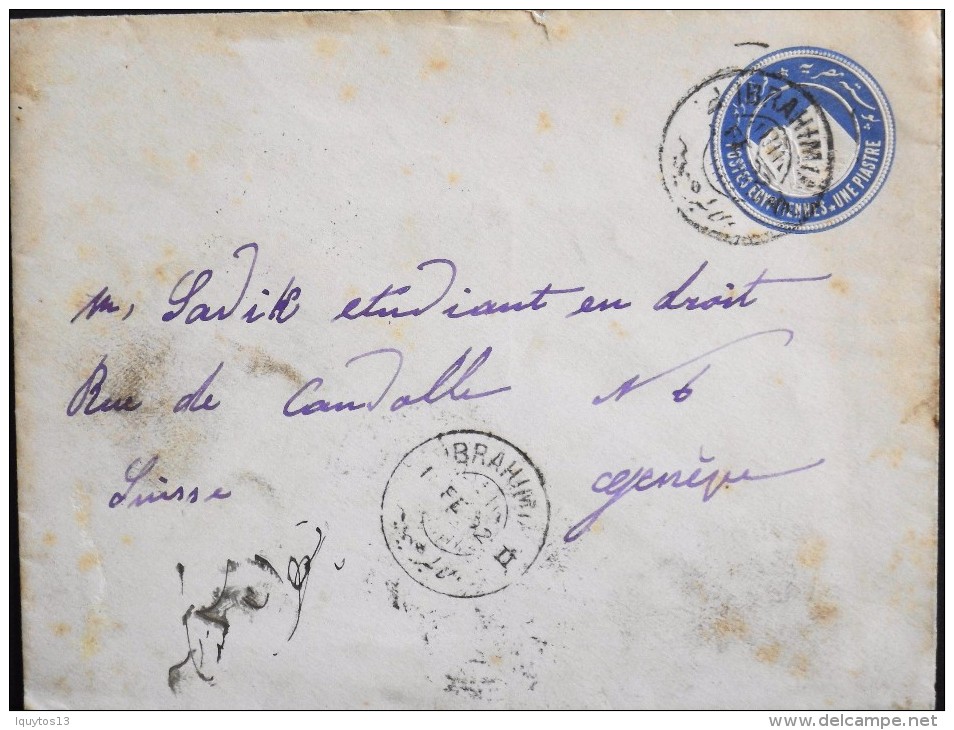 بوسته مصريه
POSTES EGYPTIENNES. UNE PIASTRE
IBRAHIMIA
FE
m, Sadik etudiant en droit
Rue de Candolle N 6
Suisse Genève
IBRAHIMI
FE
lquytos13
www.delcampe.net